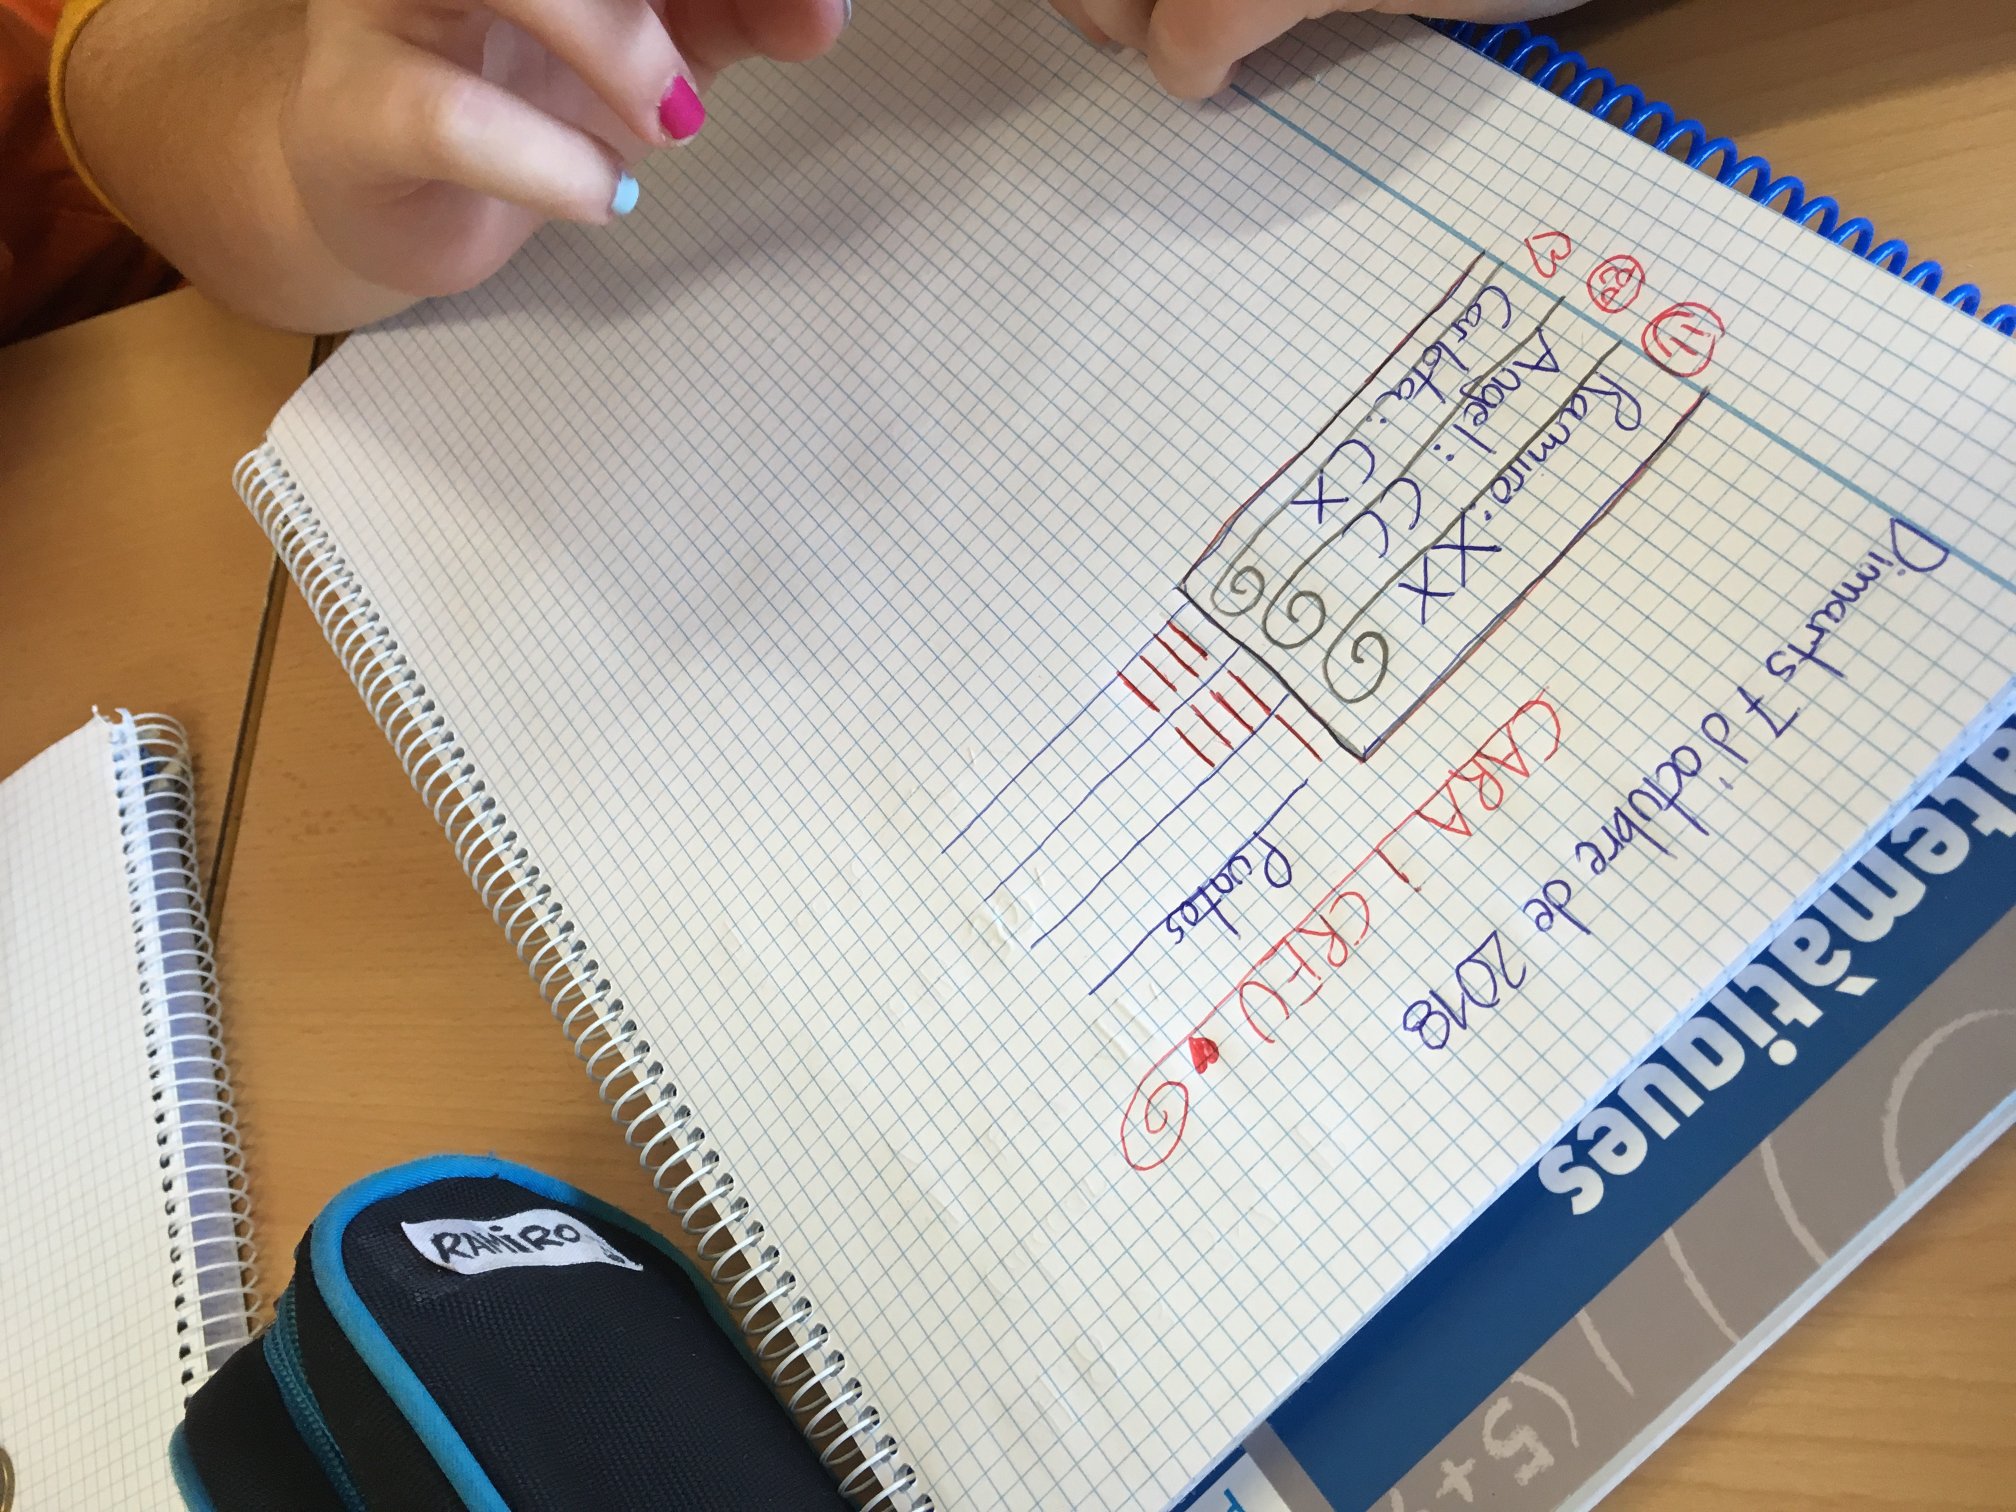 Dimarts 7 d'octubre de 2018
CARA I CREU
Ramiro: XX
Angel: CC
Carlota: CX
Puntos
RAMIRO
atemàtiques
(5+